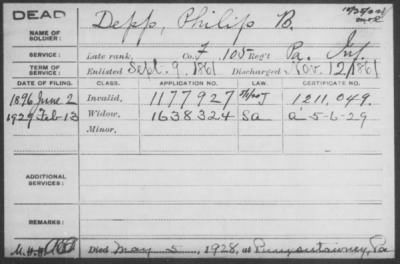 DEAD
NAME OF SOLDIER: Depp, Philip B.
SERVICE: Late rank, Co. F, 105 Reg't Pa. Inf.
TERM OF SERVICE: Enlisted Sept. 9, 1861 Discharged Nov. 12, 1861
DATE OF FILING. CLASS. APPLICATION NO. LAW. CERTIFICATE NO.
1896 June 2 Invalid, 1177927 J 1211,049.
1929 Feb 13 Widow, 1638324 Sa a 5-6-29
Minor,
ADDITIONAL SERVICES:
REMARKS:
Died May 5, 1928, at Punxsutawney, Pa